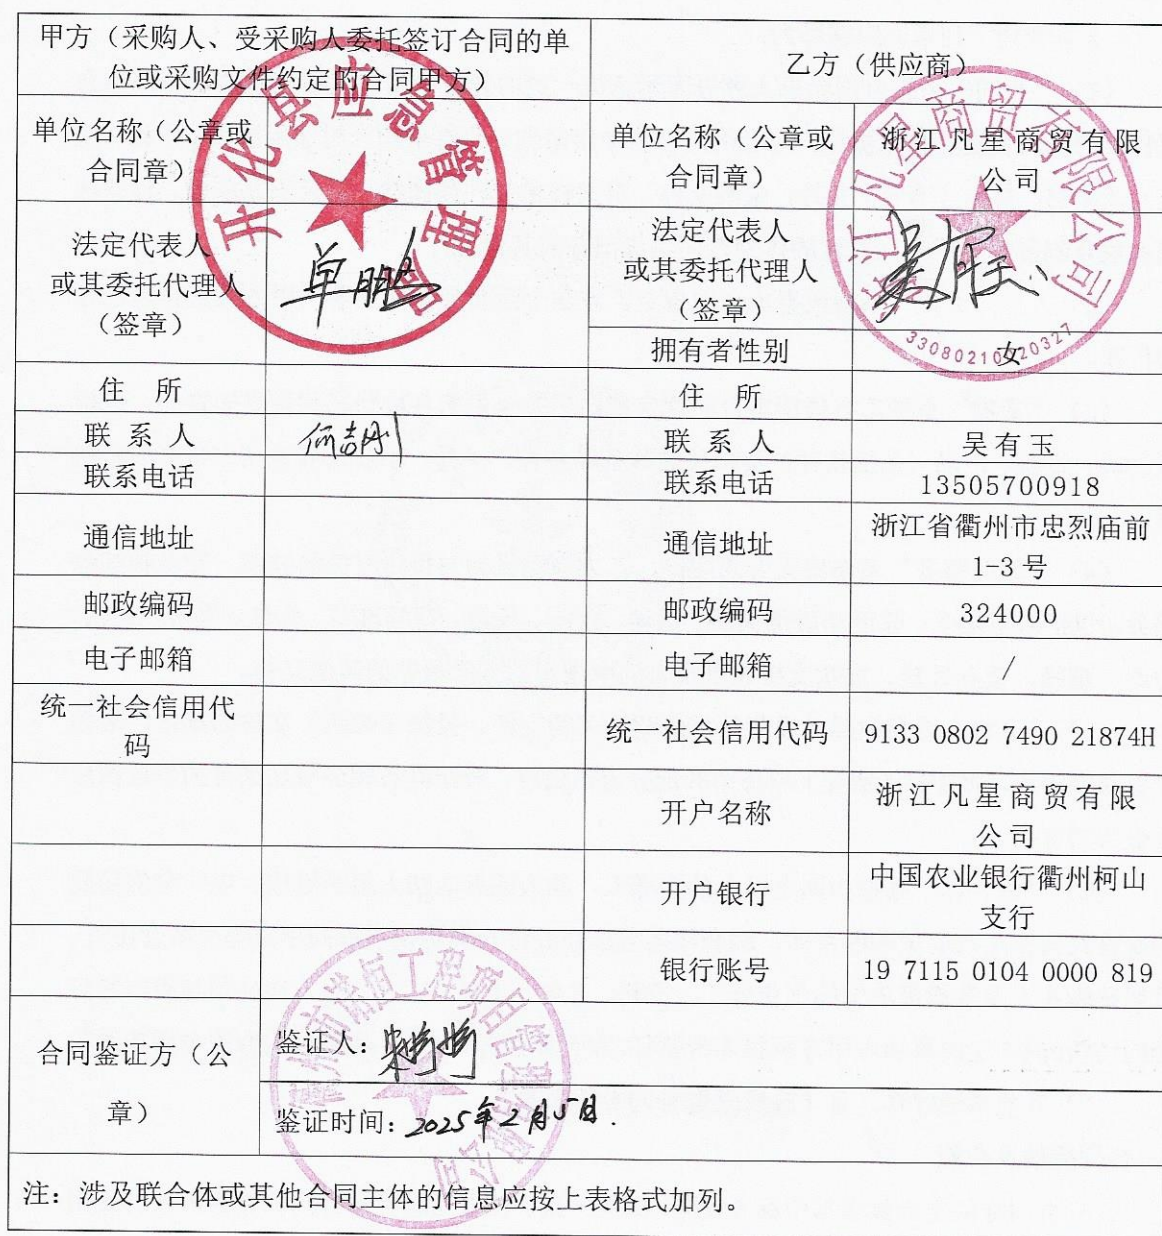 甲方（采购人、受采购人委托签订合同的单
位或采购文件约定的合同甲方）
乙方（供应商）
单位名称（公章或
合同章）
开化县应急管理局
单位名称（公章或
合同章）
浙江凡星商贸有限
公司
浙江凡星商贸有限公司
法定代表人
或其委托代理人
（签章）
单鹏
法定代表人
或其委托代理人
（签章）
拥有者性别
女
33080210020327
住 所
住 所
联 系 人
联 系 人
吴有玉
联系电话
联系电话
13505700918
通信地址
通信地址
浙江省衢州市忠烈庙前
1-3 号
邮政编码
邮政编码
324000
电子邮箱
电子邮箱
/
统一社会信用代
码
统一社会信用代码
9133 0802 7490 21874H
开户名称
浙江凡星商贸有限
公司
开户银行
中国农业银行衢州柯山
支行
银行账号
19 7115 0104 0000 819
合同鉴证方（公
章）
鉴证人：
鉴证时间：2025年2月5日.
工程项目管理有限公司
注：涉及联合体或其他合同主体的信息应按上表格式加列。